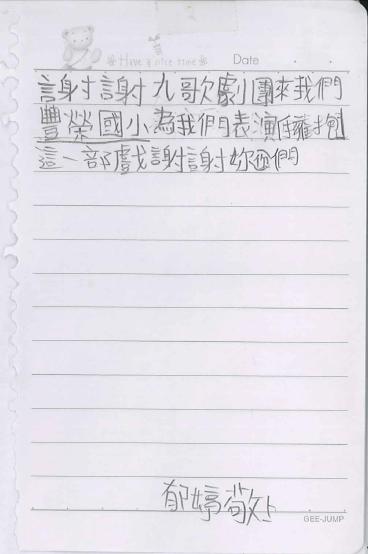 Have a nice time
Date
謝謝九歌劇團來我們
豐榮國小為我們表演擁抱
這一部戲謝謝妳們
郁婷敬上
GEE-JUMP